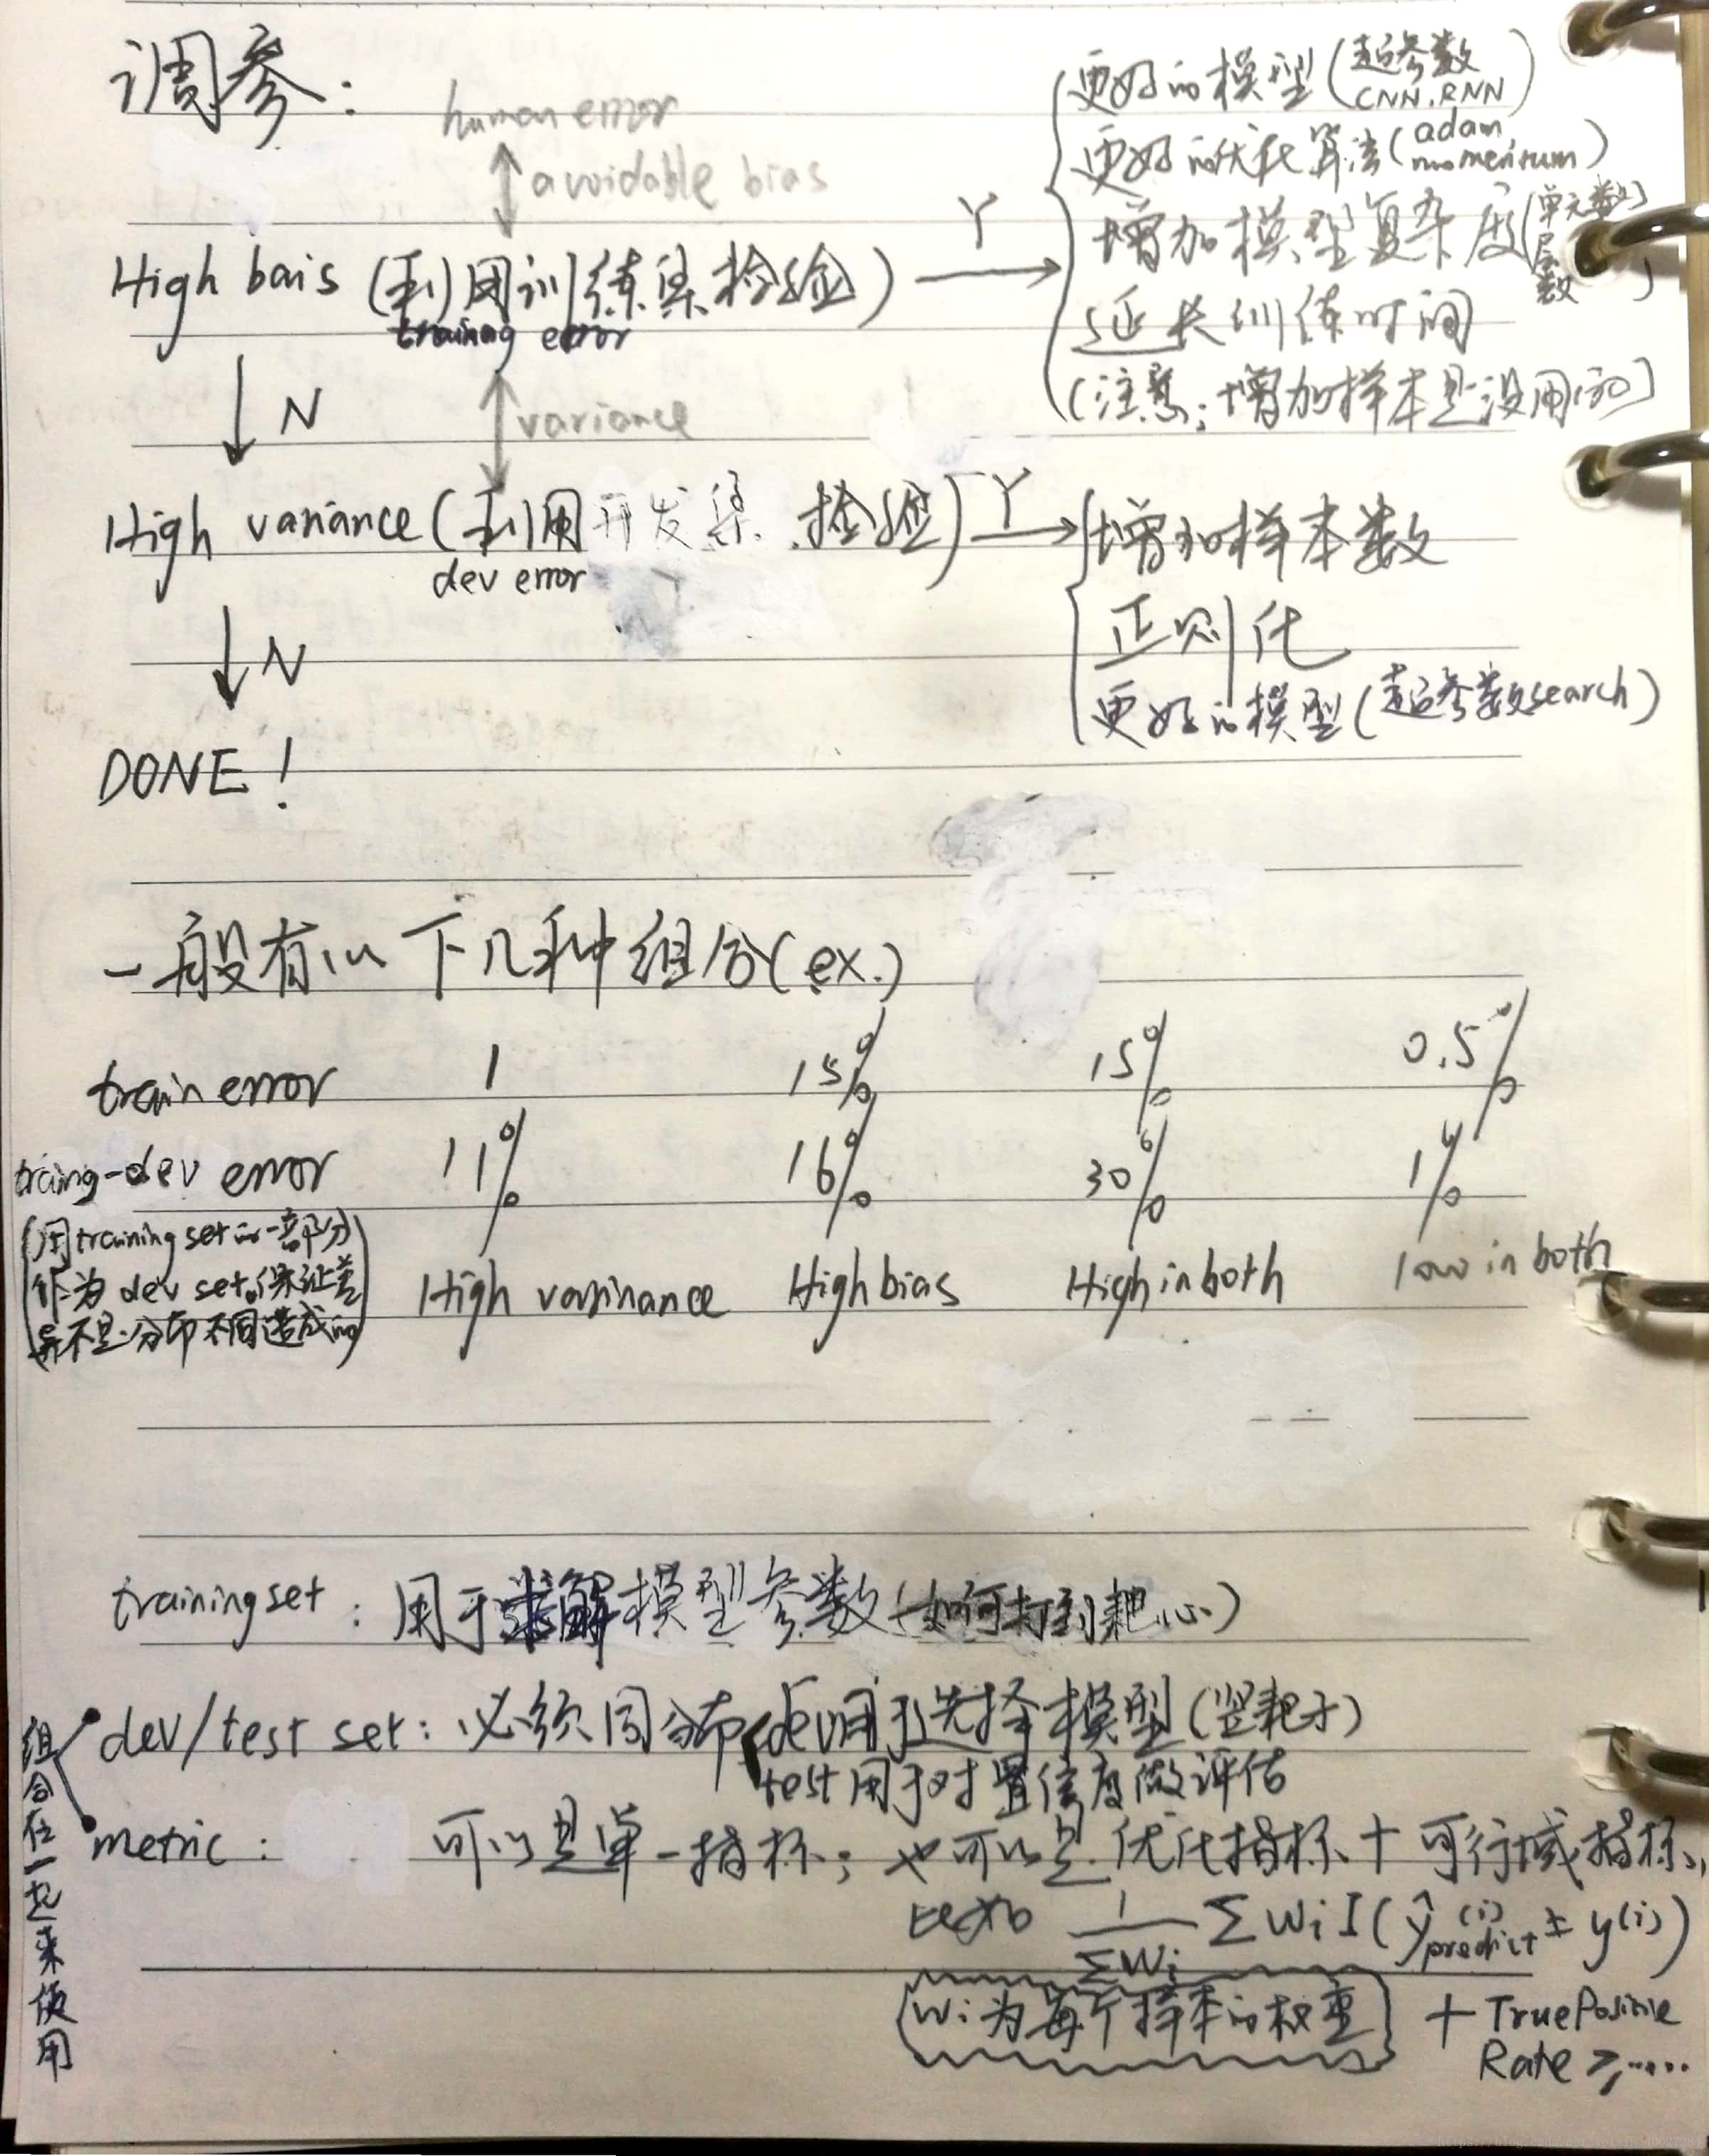 调参：
human error
avoidable bias
High bais (利用训练集检验) Y
training error
更好的模型(超参数 CNN.RNN)
更好的优化算法(adam, momentum)
增加模型复杂度(单元数 层数)
延长训练时间
(注意：增加样本是没用的)
N
variance
High variance (利用开发集 检验) Y
dev error
增加样本数
正则化
更好的模型(超参数search)
N
DONE!
一般有以下几种组合(ex.)
train error 1 15% 15% 0.5%
traing-dev error 11% 16% 30% 1%
(用training set的一部分
作为dev set。保证差
异不是分布不同造成的)
High varinance High bias High in both low in both
training set：用于求解模型参数(如何打到靶心)
dev/test set：必须同分布 dev用于选择模型(竖靶子)
test用于对置信度做评估
metric： 可以是单一指标；也可以是优化指标+可行域指标，
比如 1/∑Wi ∑WiI(ŷ(i)predict ≠ y(i))
(Wi为每个样本的权重) + True Positive
Rate ≥.....
组合在一起来使用